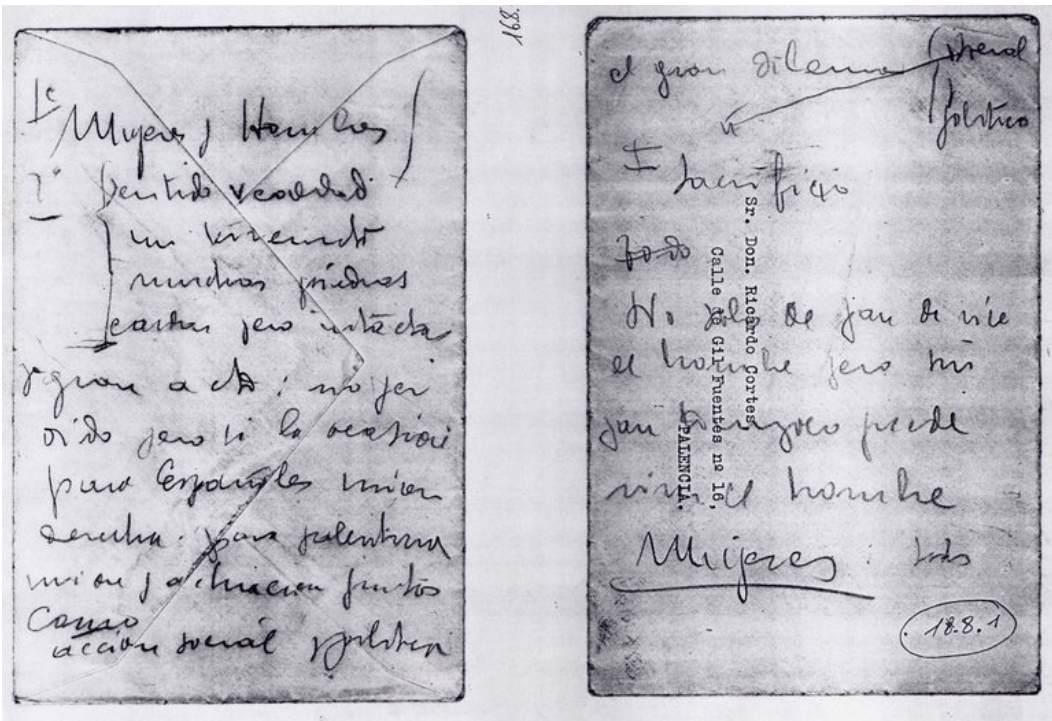 168.
1º
Mujeres y Hombres
2º Sentido verdad
un
muchas piedras
pero intacta
y gran acto: no por
oido pero si la
para Españoles union
derecha. para palentina
union y actuacion juntos
Como
acción social y política
el gran dilema social
politico
I Sacrificio
todo
No solo de pan de vive
el hombre pero sin
pan tampoco puede
vivir el hombre
Mujeres: todos
Sr. Don. Ricardo Cortes
Calle de Gil Fuentes nº 16,
PALENCIA.
18.8.1